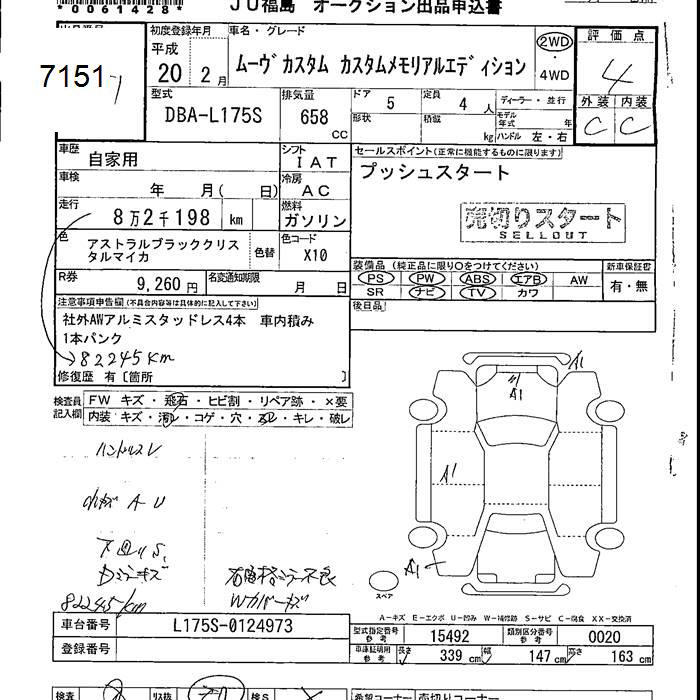 *0061428*
JU福島 オークション出品申込書
7151
初度登録年月
平成
20 2月
車名・グレード
ムーヴカスタム カスタムメモリアルエディション
2WD
・
4WD
評価点
4
外装 内装
C C
型式
DBA-L175S
排気量
658
CC
ドア 5
定員 4人
形状
積載 kg
ディーラー・並行
モデル年式 年
ハンドル 左・右
車歴
自家用
シフト
IAT
セールスポイント(正常に機能するものに限ります)
プッシュスタート
車検
年 月( 日)
冷房
AC
走行
8万2千198 km
燃料
ガソリン
売切りスタート
SELLOUT
色
アストラルブラッククリスタルマイカ
色替
色コード
X10
装備品(純正品に限り○をつけてください)
PS PW ABS エアB AW
SR ナビ TV カワ
新車保証書
有・無
R券
9,260円
名変通知期限
月 日
後日品
注意事項申告欄(不具合内容等は具体的に記入して下さい)
社外AWアルミスタッドレス4本 車内積み
1本パンク
82245km
修復歴 有〔箇所 〕
検査員記入欄
FW キズ・飛石・ヒビ割・リペア跡・×要
内装・キズ・汚レ・コゲ・穴・スレ・キレ・破レ
ハンドルスレ
A U
82245km
Wカバーキズ
A1
A1
A1
A1
スペア
A-キズ E-エクボ U-凹み W-補修跡 S-サビ C-腐食 XX-交換済
車台番号
L175S-0124973
登録番号
型式指定番号参考
15492
類別区分番号参考
0020
車庫証明用参考
長さ 339 cm
幅 147 cm
高さ 163 cm
検査
リス検
検S
希望コーナー
売切りコーナー